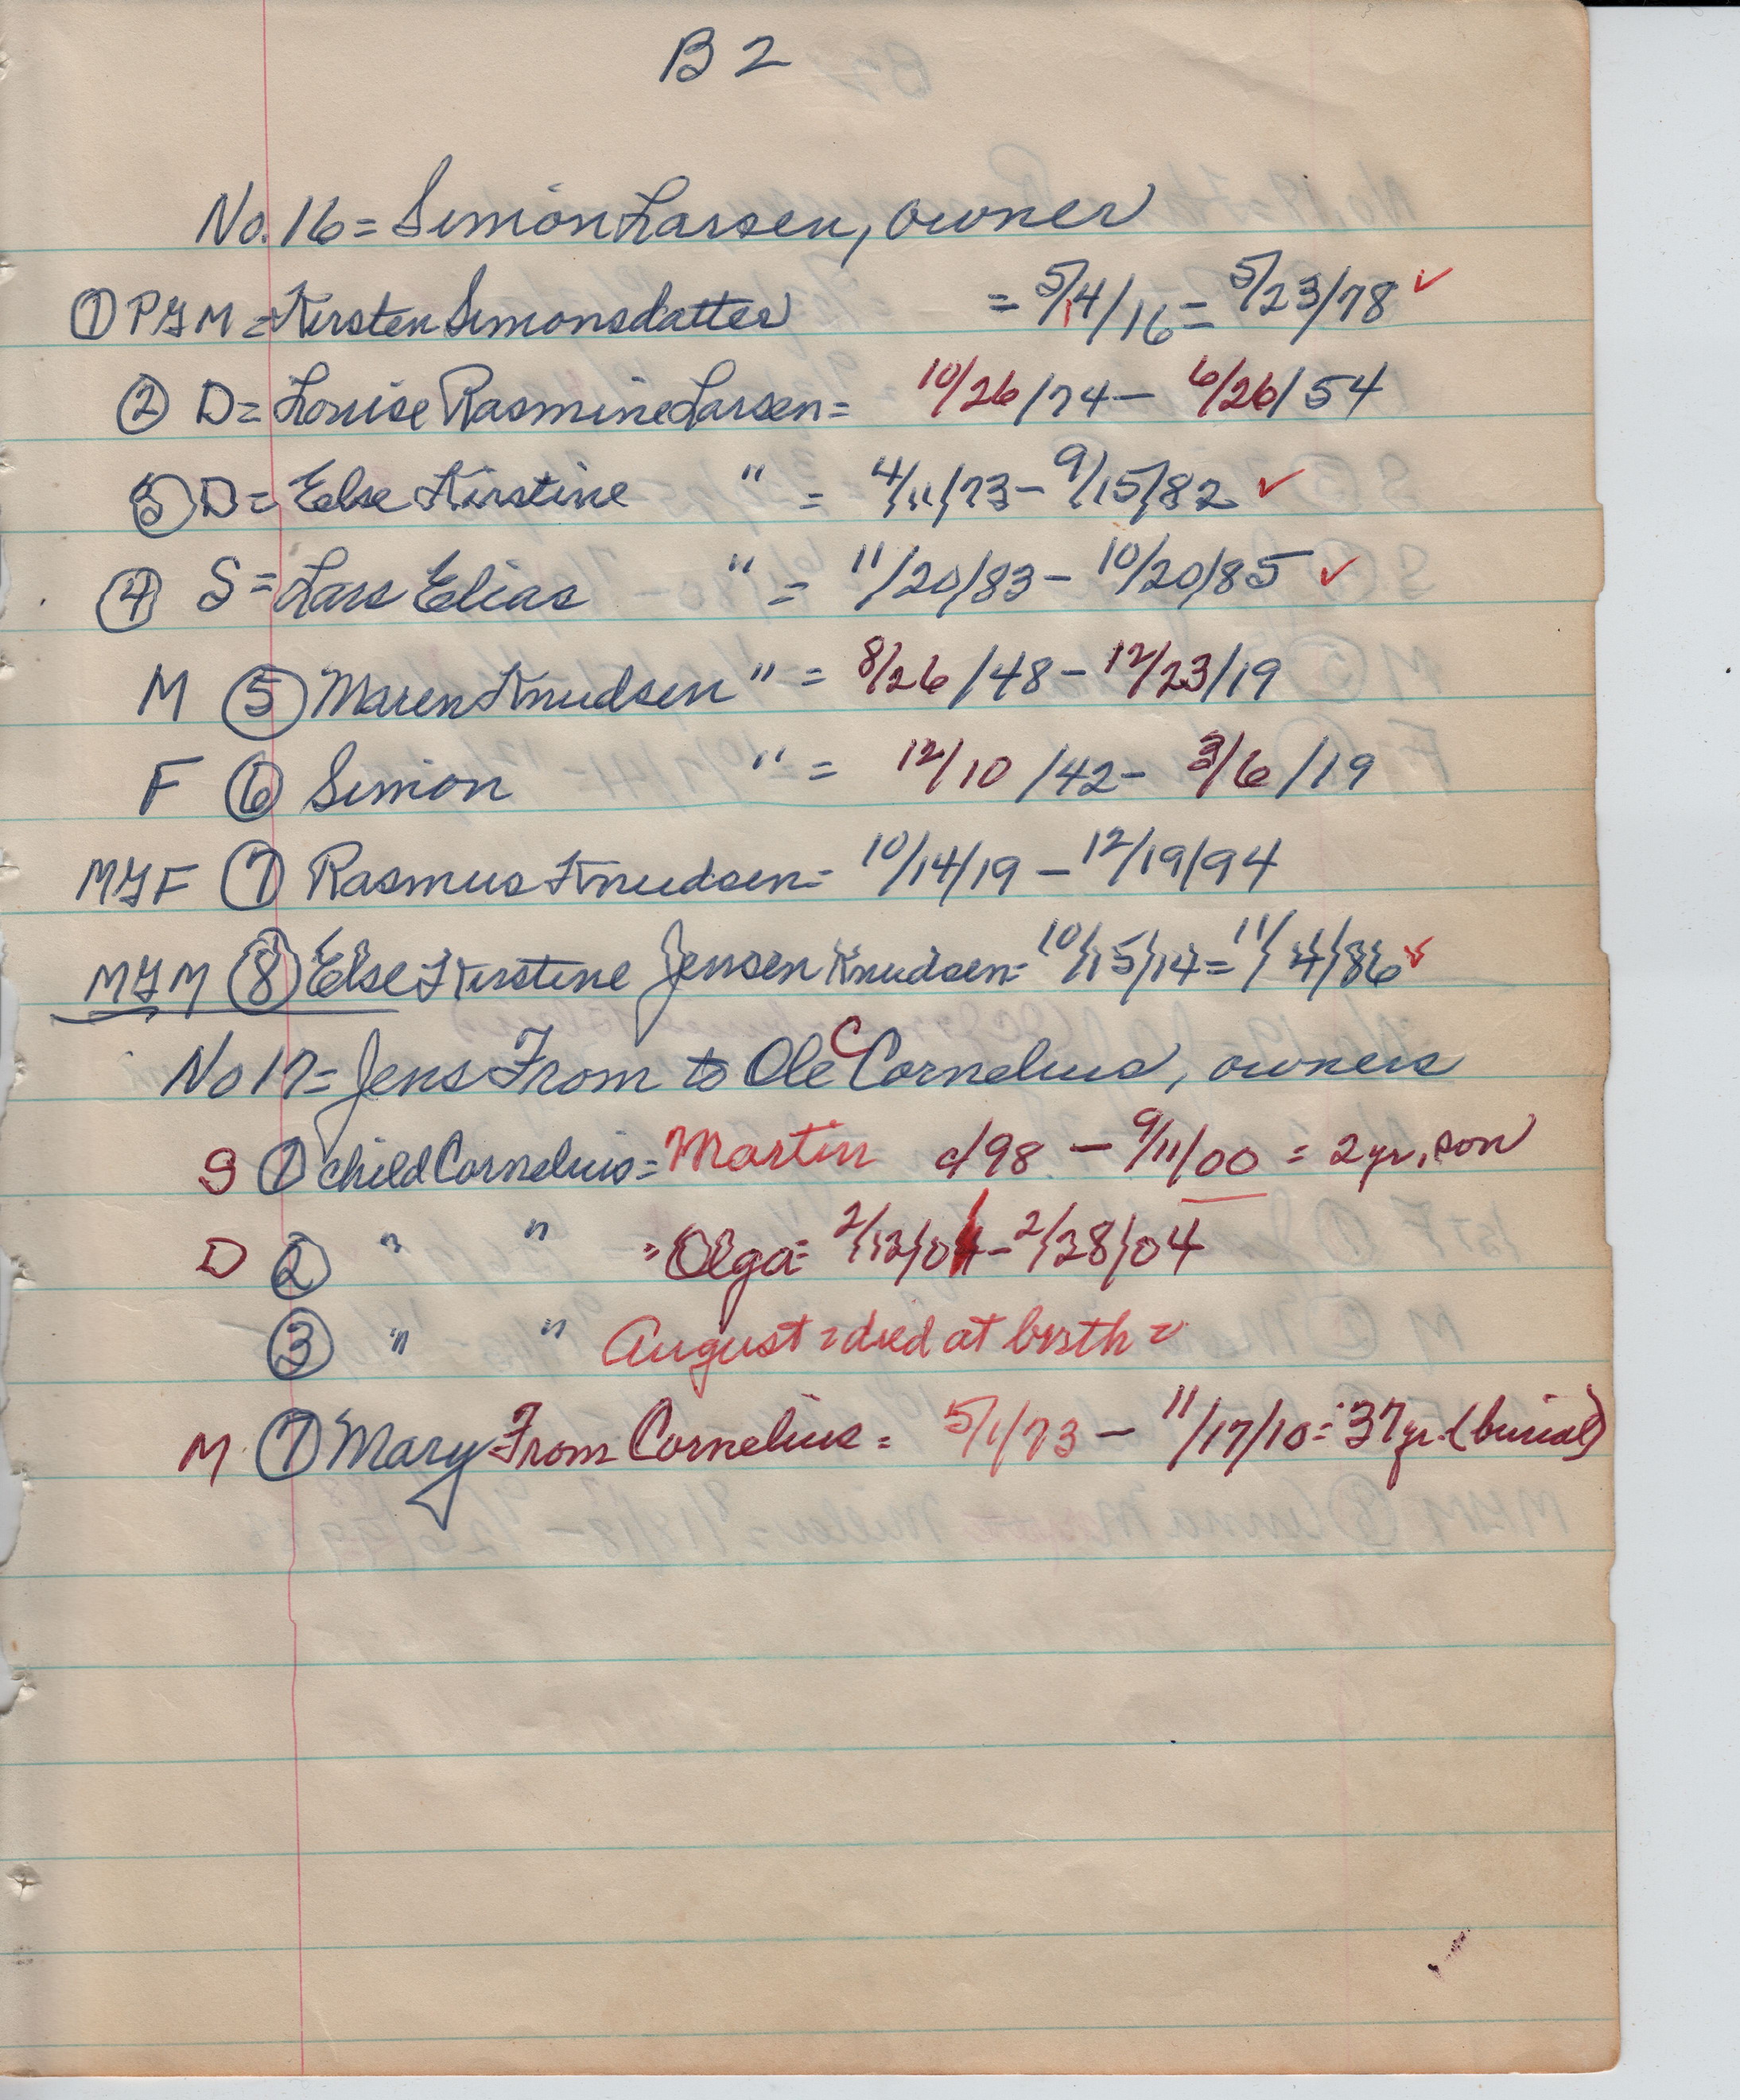 B 2
No. 16 = Simon Larsen, owner
① PGM = Kirsten Simonsdatter = 5/14/16 = 5/23/78 ✓
② D = Louise Rasmine Larsen = 10/26/74 - 6/26/54
③ D = Else Kirstine " = 4/11/73 - 9/15/82 ✓
④ S = Lars Elias " = 11/20/83 - 10/20/85 ✓
M ⑤ Maren Knudsen " = 8/26/48 - 12/23/19
F ⑥ Simon " = 12/10/42 - 3/6/19
MGF ⑦ Rasmus Knudsen = 10/14/19 - 12/19/94
MGM ⑧ Else Kirstine Jensen Knudsen = 10/15/14 = 11/4/86 ✓
No 17 = Jens From to Ole C Cornelius, owners
S ① child Cornelius = Martin c/98 - 9/11/00 = 2 yr, son
D ② " " = Olga = 2/12/04 - 2/28/04
③ " " August = died at birth =
M ⑦ Mary From Cornelius = 5/1/73 - 11/17/10 = 37 yr. (burial)